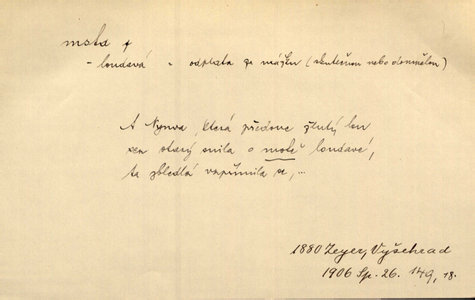 msta f
- loudavá = odplata za urážku (skutečnou nebo domnělou)
A Nynva, která předouc žlutý len
sen starý snila o mstě loudavé,
ta zbledlá vzpřímila se, ...
1880 Zeyer, Vyšehrad
1906 Sp. 26. 149, 18.